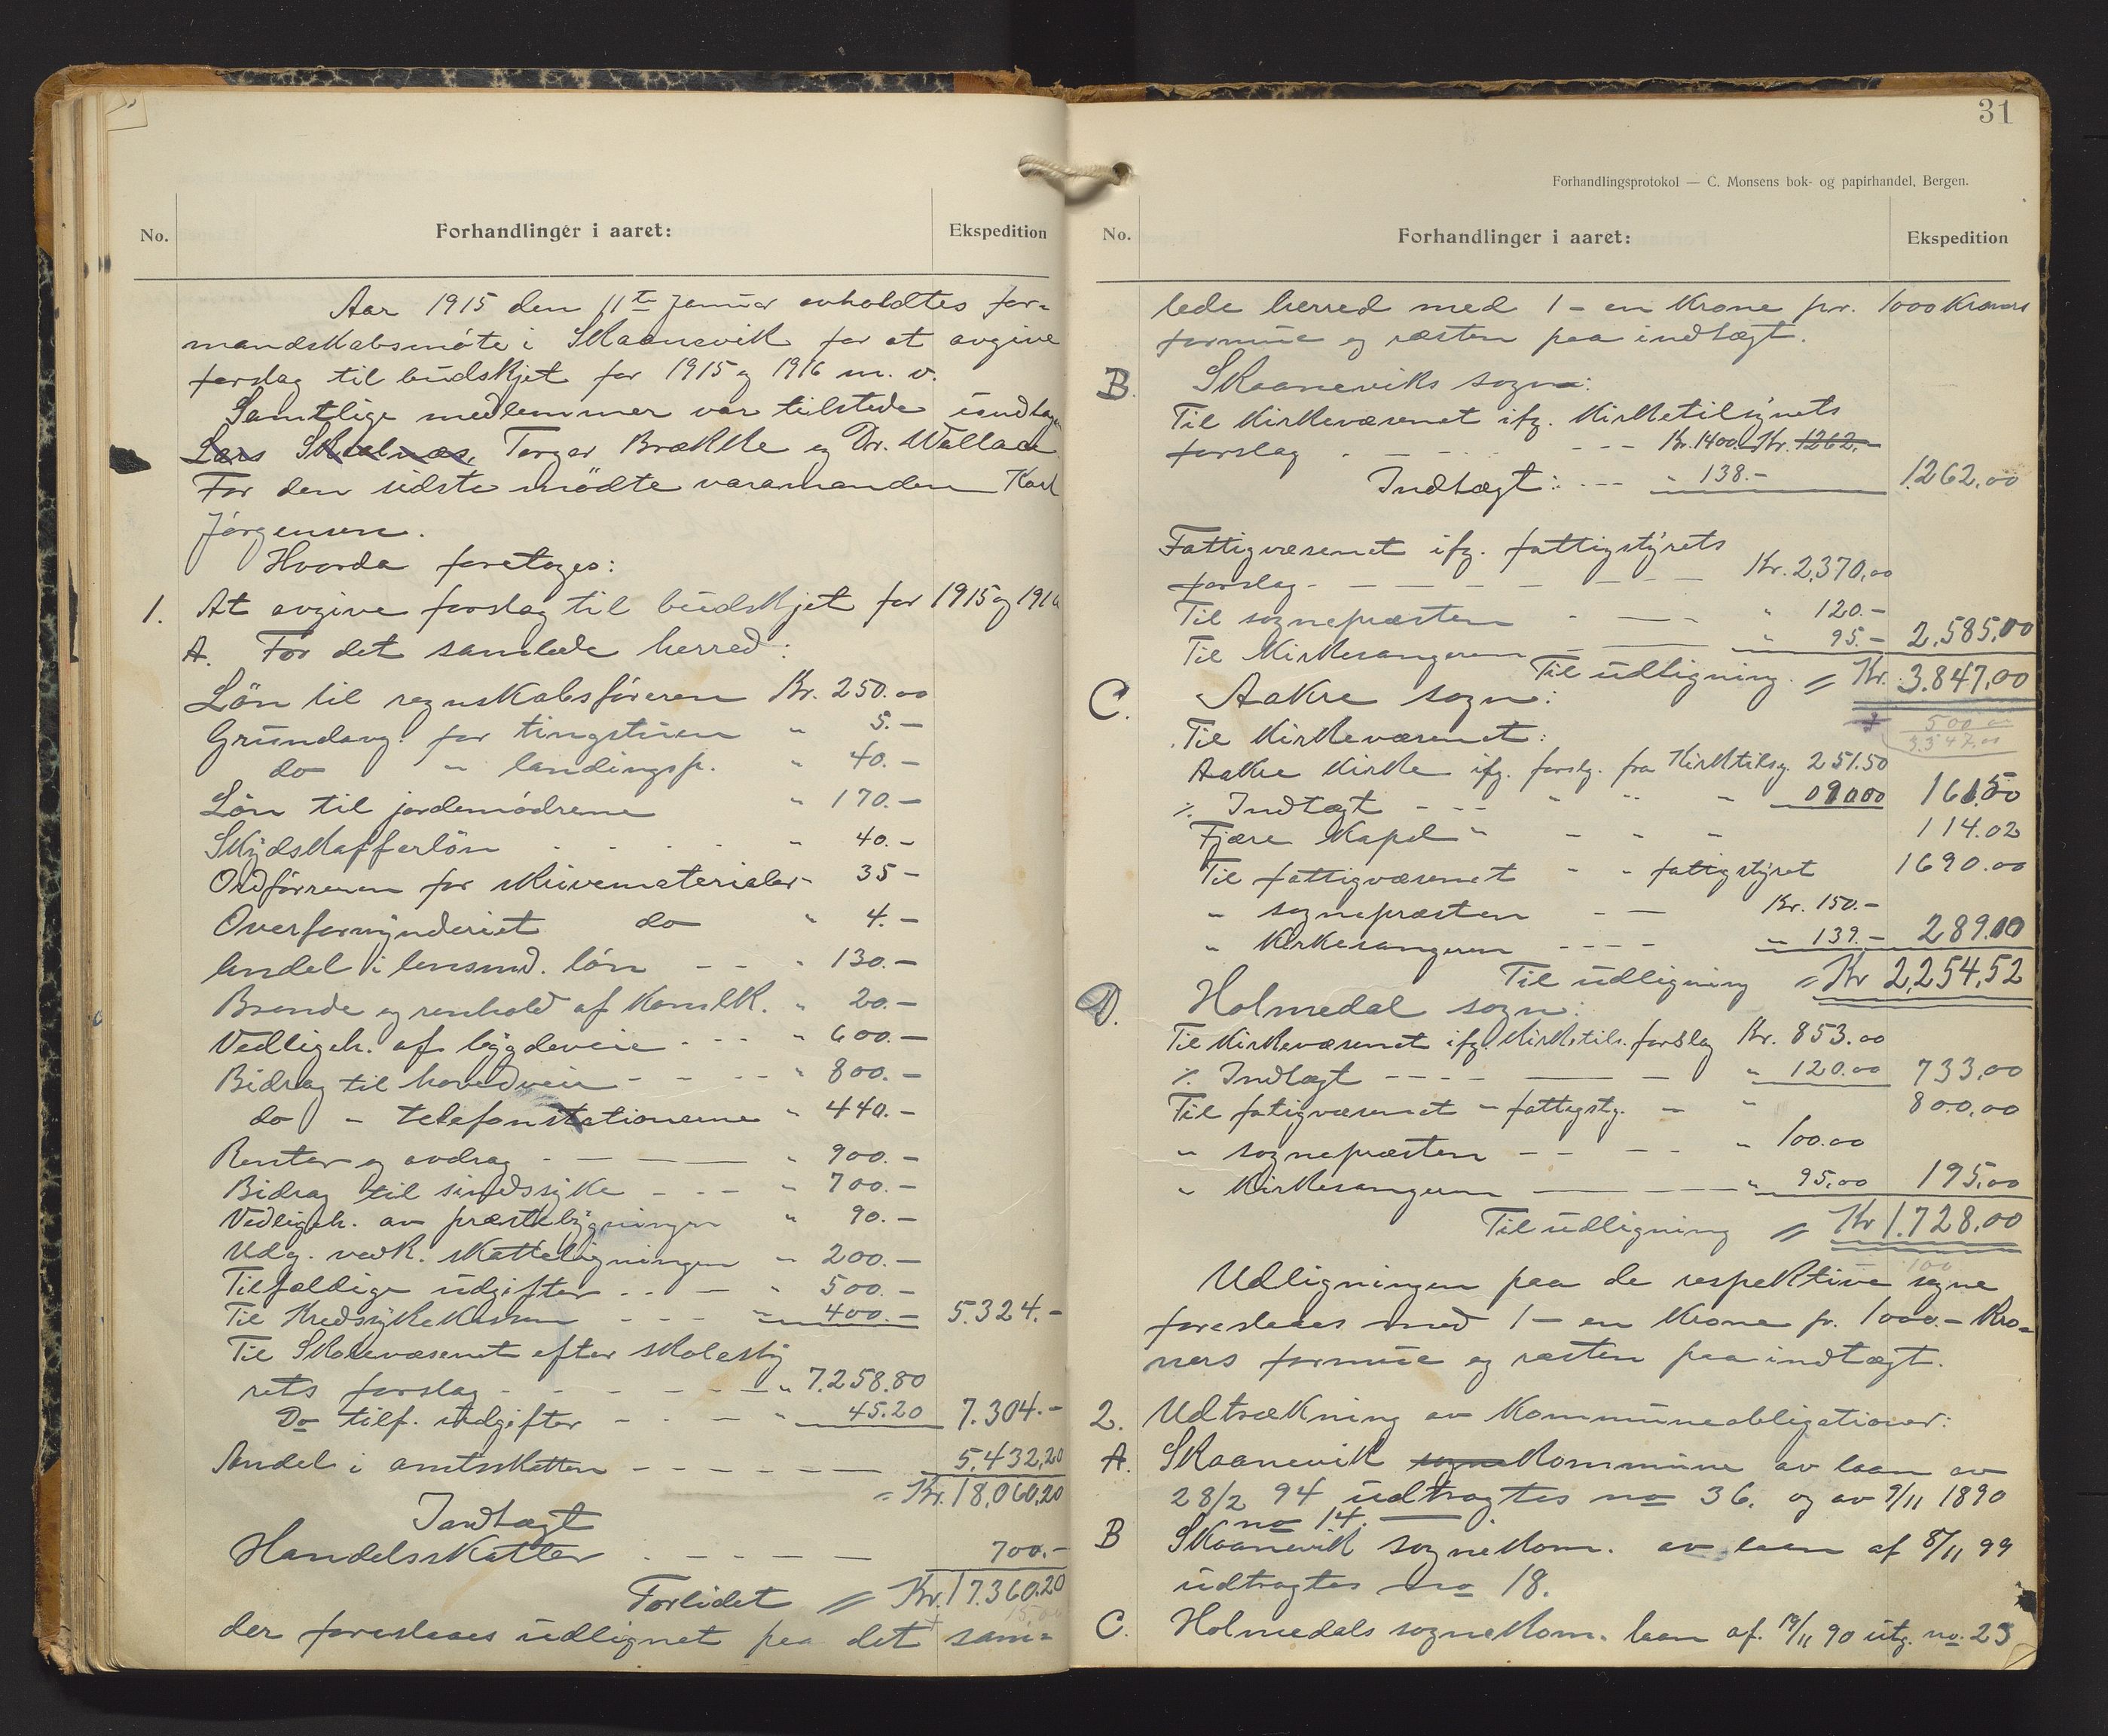 No.
Forhandlinger i aaret:
Ekspedition
Aar 1915 den 11te Januar avholdtes for=
mandskabsmøte i Skaanevik for at avgive
forslag til budskjet for 1915 og 1916 m. v.
Samtlige medlemmer var tilstede undtagen
Lars Skaalnæs, Torger Brække og Dr. Wallace
For den sidste mødte varamanden Karl
Jørgensen.
Hvorda foretoges:
1. At avgive forslag til budskjet for 1915 og 1916
A. For det samlede herred:
Løn til regnskabsføreren Kr. 250.00
Grundavg. for tingstuen " 5.-
do " landingspl. " 40.-
Løn til jordemødrene " 170.-
Skydskafferløn - - - " 40.-
Ordføreren for skrivematerialer " 35 -
Overformynderiet do " 4.-
Andel i lensmd. løn - - " 130.-
Brende og renhold af Komlk. " 20.-
Vedligeh. af bygdeveie - - - " 600.-
Bidrag til hovedveie - - - " 800.-
do - telefonstationerne " 440.-
Renter og avdrag - - - " 900.-
Bidrag til sindssyke - - - " 700.-
Vedligeh. av præstebygningen " 90.-
Udg. vedk. skatteligningen " 200.-
Tilfældige udgifter - - - " 500.-
Til Kredsykekassen - - - " 400.- 5.324.-
Til Skolevæsenet efter skolesty
rets forslag - - - - - " 7.258.80
Do tilf. udgifter - - - " 45.20 7.304.-
Andel i amtsskatten - - - - - 5.432,20
= Kr. 18,060,20
Indtægt
Handelsskatter - - - - 700.-
Forlidet = Kr. 17.360.20
der foreslaaes udlignet paa det sam=
31
Forhandlingsprotokol — C. Monsens bok- og papirhandel, Bergen.
No.
Forhandlinger i aaret:
Ekspedition
lede herred med 1 - en Krone pr. 1000 Kroners
formue og resten paa indtægt.
B. Skaaneviks sogn:
Til Kirkevæsenet ifg. Kirketilsynets
forslag - - - - - Kr. 1400.- Kr. 1262.-
Indtægt: - - - " 138.- 1.262,00
Fattigvæsenet ifg. fattigstyrets
forslag - - - - - Kr. 2,370,00
Til sognepræsten - - - " 120.-
Til Kirkesangeren - - - " 95.- 2.585,00
Til udligning = Kr. 3.847,00
500
3.347,00
C. Aakre sogn:
Til Kirkevæsenet:
Aakre Kirke ifg. forslg. fra Kirktilsy. 251.50
÷ Indtægt - - - " " " 090.00 161.50
Fjære Kapel " - - - 114.02
Til fattigvæsenet - - fattigstyret 1690.00
" sognepræsten - - Kr. 150.-
" Kirkesangeren - - - - " 139.- 289.00
Til udligning = Kr 2,254,52
D. Holmedal sogn:
Til Kirkevæsenet ifg. Kirketils. forslag Kr. 853.00
÷ Indtægt - - - - - " 120.00 733,00
Til fatigvæsenet - fattigsty. - " 800,00
" sognepræsten - - - - " 100.00
" Kirkesangeren - - " 95,00 195,00
Til udligning = Kr 1.728,00
100
Udligningen paa de respektive sogne
foreslaaes med 1 - en Krone pr. 1000.- Kro=
ners formue og resten paa indtægt.
2. Udtrækning av Kommuneobligationer:
A. Skaanevik sogne Kommune av laan av
28/2 94 udtrogtes no 36. og av 9/11 1890
no 14.
B Skaanevik sognekom. av laan af 8/11 99
udtrogtes no 18.
C. Holmedals sognekom. laan af. 19/11 90 utg. no. 23